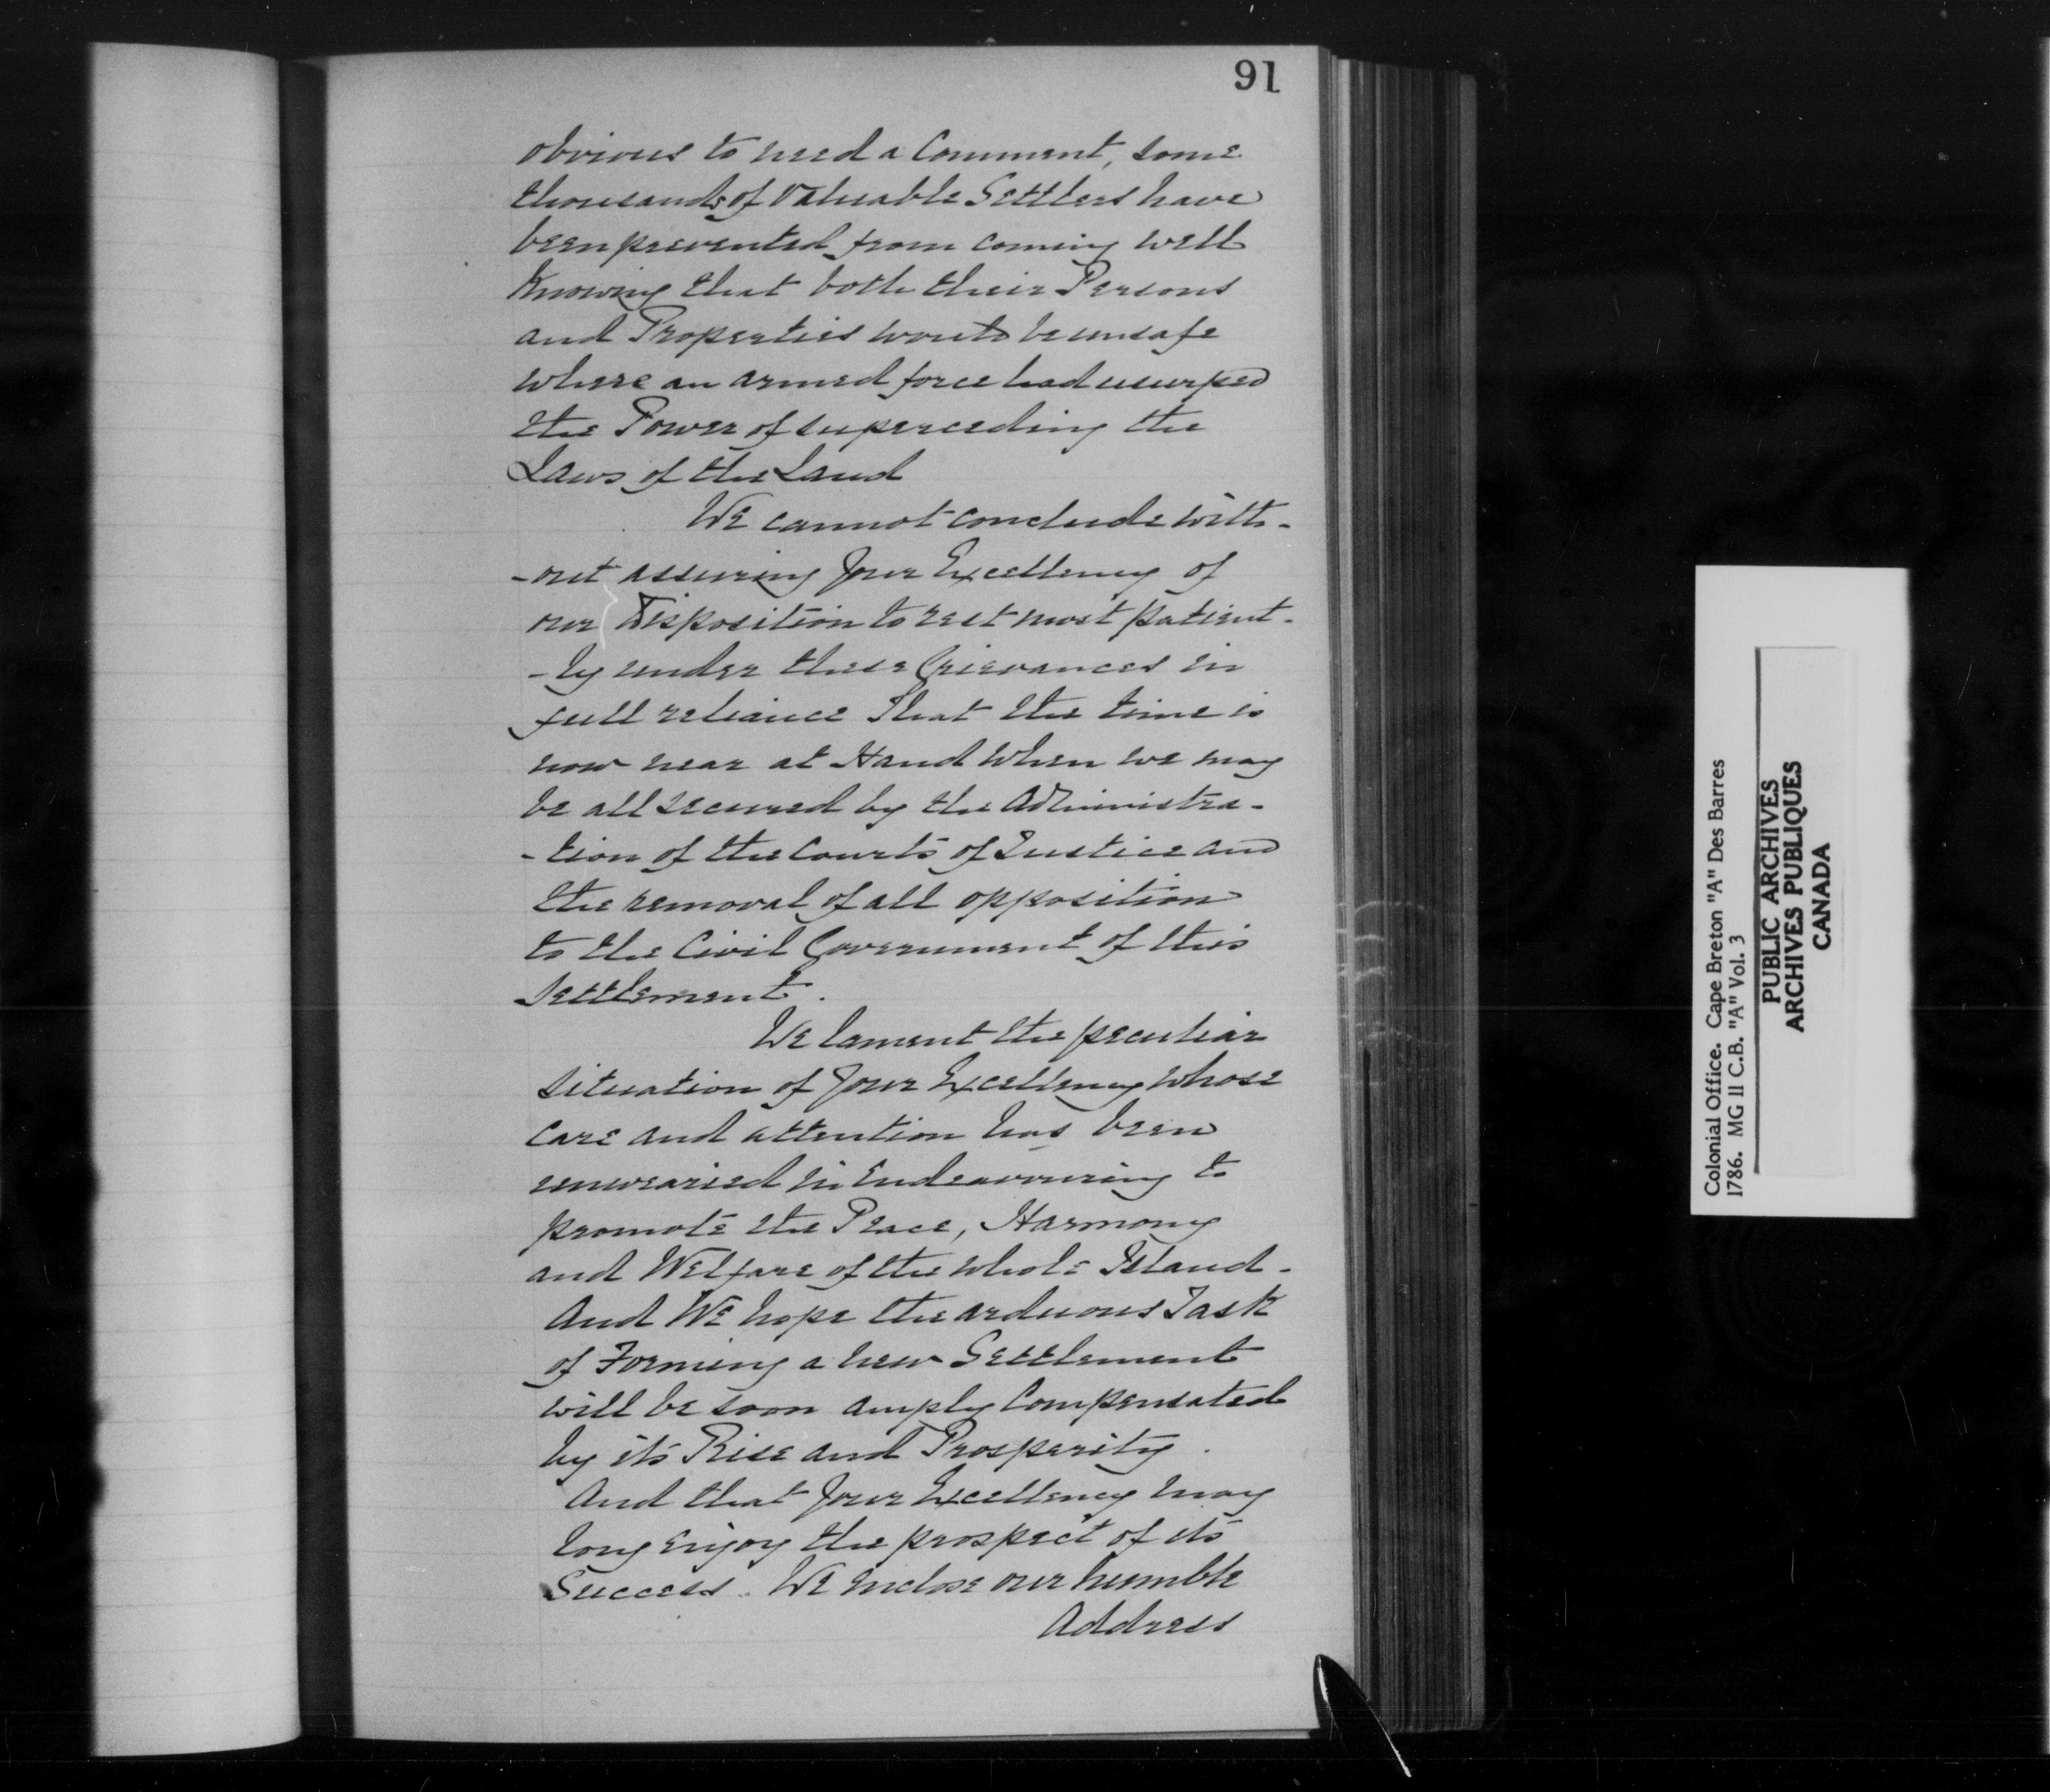 91
obvious to need a Comment, some
thousands of Valuable Settlers have
been prevented from coming well
Knowing that both their Persons
and Properties would be unsafe
where an armed force had usurped
the Power of superceding the
Laws of the Land
We cannot conclude with-
-out assuring Your Excellency of
our Disposition to rest most patient-
-ly under these Grievances in
full reliance That the time is
now near at Hand when we may
be all secured by the Administra-
-tion of the Courts of Justice and
the removal of all opposition
to the Civil Government of this
Settlement.
We lament the peculiar
situation of Your Excellency whose
care and attention has been
unwearied in Endeavouring to
promote the Peace, Harmony
and Welfare of the whole Island -
And We hope the arduous Task
of Forming a new Settlement
will be soon amply Compensated
by its Rise and Prosperity.
And that Your Excellency may
long enjoy the prospect of its
Success. We inclose our humble
Address
Colonial Office. Cape Breton "A" Des Barres
1786. MG II C.B. "A" Vol. 3
PUBLIC ARCHIVES
ARCHIVES PUBLIQUES
CANADA